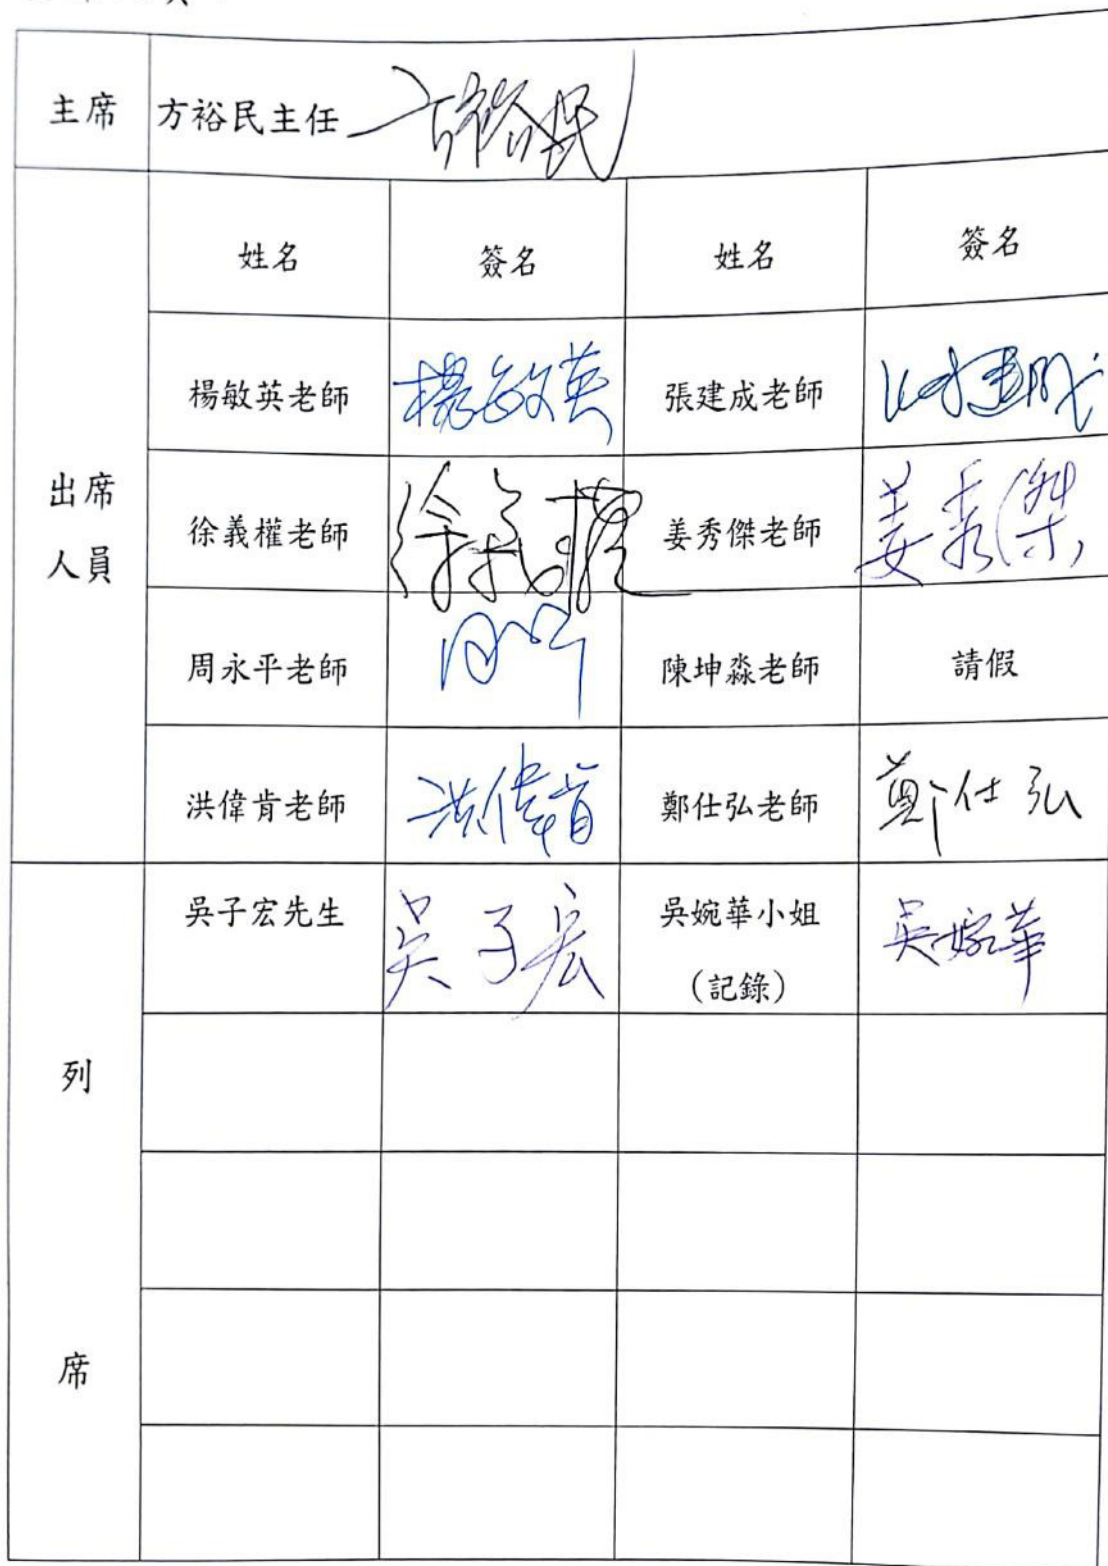 主席 方裕民主任 方裕民
姓名 簽名 姓名 簽名
楊敏英老師 楊敏英 張建成老師
出席
人員
徐義權老師 徐義權 姜秀傑老師 姜秀傑
周永平老師 陳坤淼老師 請假
洪偉肯老師 洪偉肯 鄭仕弘老師 鄭仕弘
吳子宏先生 吳子宏 吳婉華小姐 吳婉華
(記錄)
列
席